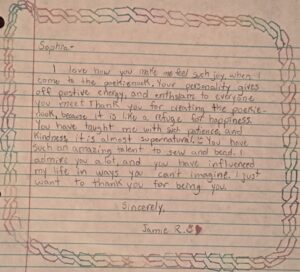 Sophia-
I love how you make me feel such joy, when I
come to the poekienook. Your personality gives
off postive energy, and enthsiasm to everyone
you meet. Thank you for creating the poekie-
nook, because it is like a refuge for happiness.
You have taught me with such patience, and
Kindness it is almost supernatural. You have
such an amazing talent to sew and bead. I
admire you alot, and you have influenced
my life in ways you can't imagine. I just
want to thank you for being you.
Sincerely,
Jamie R.